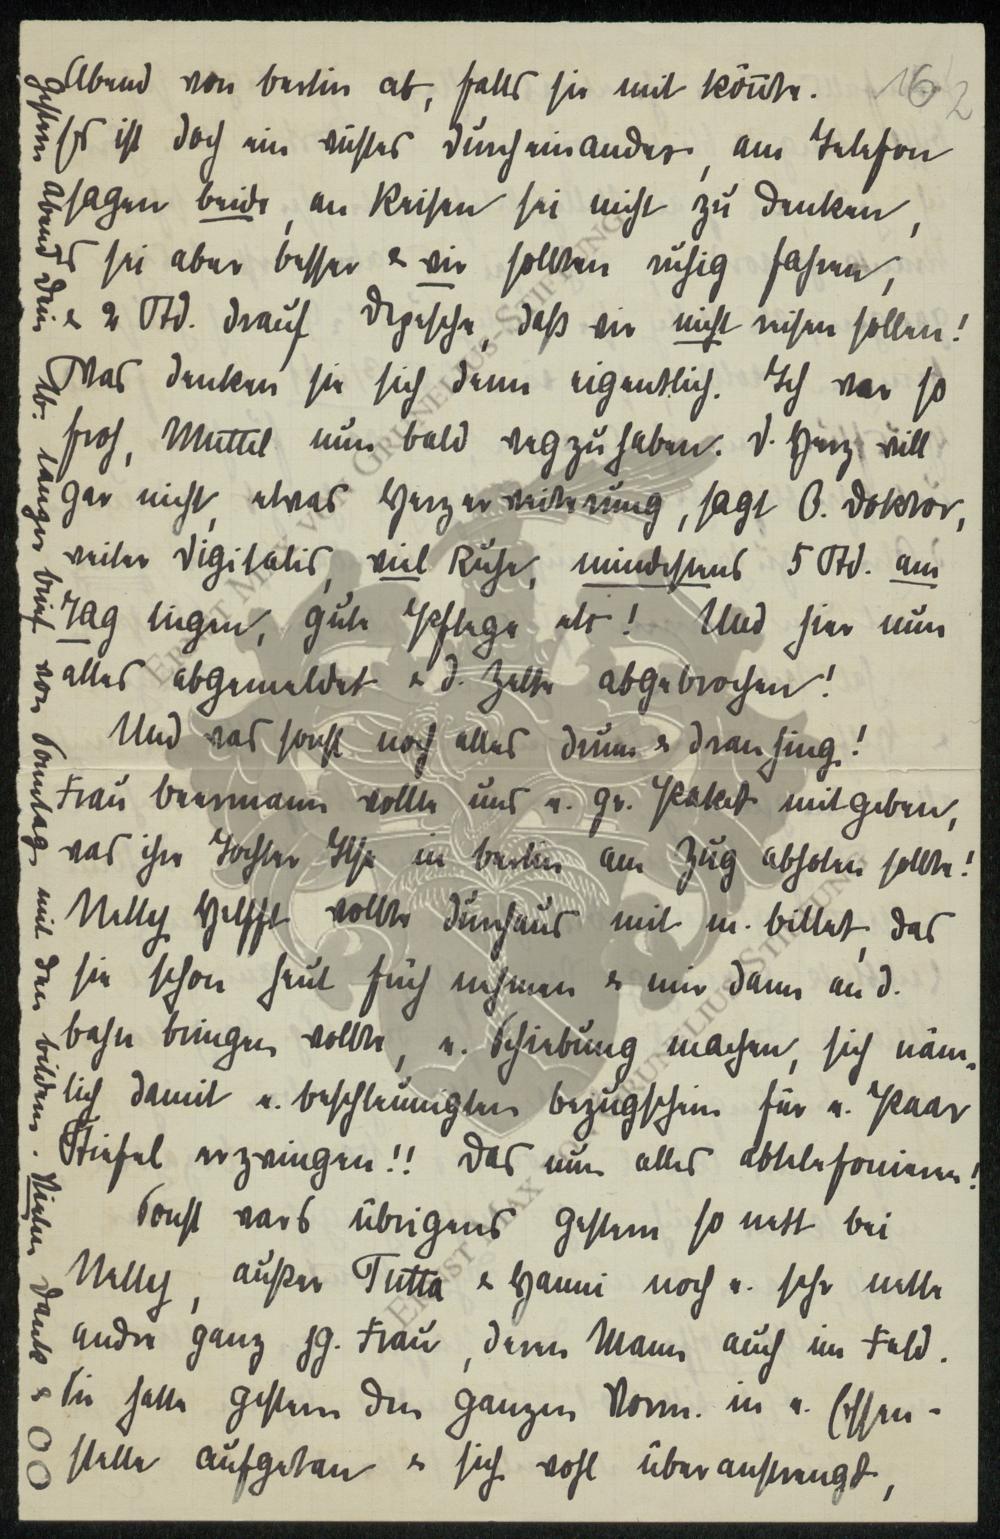 162
Abend von Berlin ab, falls sie mit könnte.
Es ist doch ein wüstes Durcheinander, am Telefon
sagen beide, an Reisen sei nicht zu denken,
es sei aber besser & wir sollten ruhig fahren,
& 2 Std. drauf Depesche, daß wir nicht reisen sollen!
Was denken sie sich denn eigentlich. Ich war so
froh, Muttel nun bald wegzuhaben. D. Herz will
gar nicht, etwas Herzerweiterung, sagt B. Doktor,
weiter Digitalis, viel Ruhe, mindestens 5 Std. am
Tag liegen, gute Pflege etc! Und hier nun
alles abgemeldet & d. Zelte abgebrochen!
Und was sonst noch alles drum & dran hing!
Frau Beermann wollte uns e. gr. Paket mitgeben,
was ihre Tochter Ilse in Berlin am Zug abholen sollte!
Nelly Helfft wollte durchaus mit m. Billet, das
sie schon heut früh nehmen & mir dann an d.
Bahn bringen wollte, e. Schiebung machen, sich näm-
lich damit e. beschleunigten Bezugschein für e. Paar
Stiefel erzwingen!! Das nun alles abtelefonieren!
Sonst wars übrigens gestern so nett bei
Nelly, außer Tutta & Hanni noch e. sehr nette
andre ganz jg. Frau, deren Mann auch im Feld.
Sie hatte gestern den ganzen Vorm. in e. Essen-
stelle aufgetan & sich wohl überanstrengt,
Gestern Abend dein lb. langer Brief von Sonntag mit den Bildern. Vielen Dank & OO
ERNST MAX VON GRUNELIUS-STIFTUNG
ERNST MAX VON GRUNELIUS-STIFTUNG